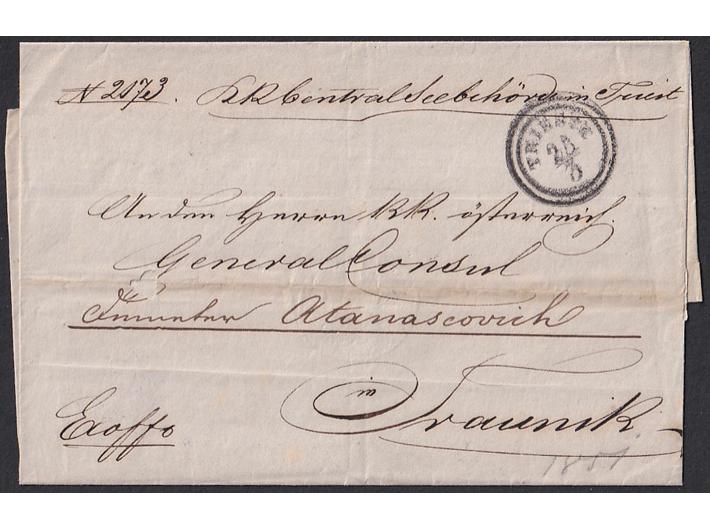 N 2173. KK Central Seebehörde in Triest
TRIESTE
25
An den Herrn KK. österreich.
General Consul
Demeter Atanascovich
in Traunik
Exoffo
1851.